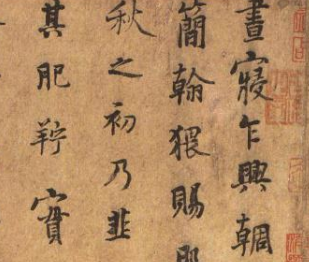 晝寢乍興輖
簡翰猥賜
秋之初乃韭
其肥羜實